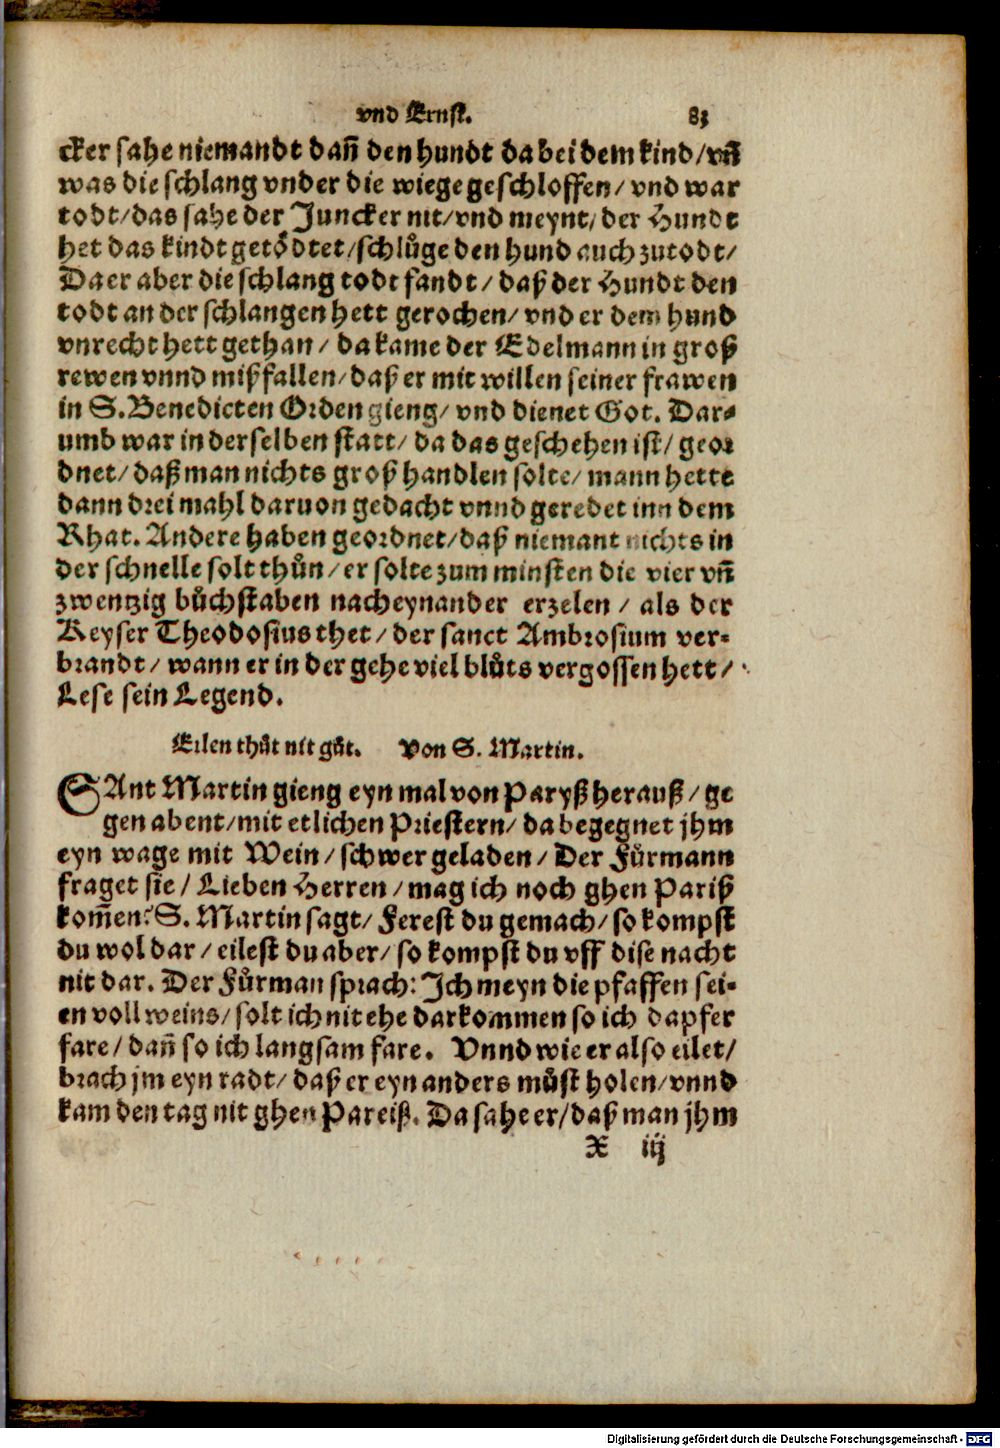 vnd Ernst. 83
cker sahe niemandt dañ den hundt da bei dem kind/vñ
was die schlang vnder die wiege geschloffen/ vnd war
todt/das sahe der Juncker nit/vnd meynt/ der Hundt
het das kindt getödtet/schlůge den hund auch zu todt/
Da er aber die schlang todt fandt/ daß der Hundt den
todt an der schlangen hett gerochen/ vnd er dem hund
vnrecht hett gethan/ da kame der Edelmann in groß
rewen vnnd mißfallen/ daß er mit willen seiner frawen
in S. Benedicten Orden gieng/ vnd dienet Got. Dar-
umb war in derselben statt/ da das geschehen ist/ geor
dnet/ daß man nichts groß handlen solte/ mann hette
dann drei mahl daruon gedacht vnnd geredet inn dem
Rhat. Andere haben geordnet/ daß niemant nichts in
der schnelle solt thůn/ er solte zum minsten die vier vñ
zwentzig bůchstaben nacheynander erzelen/ als der
Keyser Theodosius thet/ der sanct Ambrosium ver-
brandt/ wann er in der gehe viel blůts vergossen hett/
Lese sein Legend.
Eilen thůt nit gůt. Von S. Martin.
SAnt Martin gieng eyn mal von Paryß herauß/ ge
gen abent/mit etlichen Priestern/ da begegnet jhm
eyn wage mit Wein/ schwer geladen/ Der Fůrmann
fraget sie/ Lieben Herren/ mag ich noch ghen Pariß
kom̃en? S. Martin sagt/ Ferest du gemach/ so kompst
du wol dar/ eilest du aber/ so kompst du vff dise nacht
nit dar. Der Fůrman sprach: Ich meyn die pfaffen sei-
en voll weins/ solt ich nit ehe darkommen so ich dapfer
fare/ dañ so ich langsam fare. Vnnd wie er also eilet/
brach jm eyn radt/ daß er eyn anders můst holen/ vnnd
kam den tag nit ghen Pareiß. Da sahe er/ daß man jhm
X iij
Digitalisierung gefördert durch die Deutsche Forschungsgemeinschaft - DFG